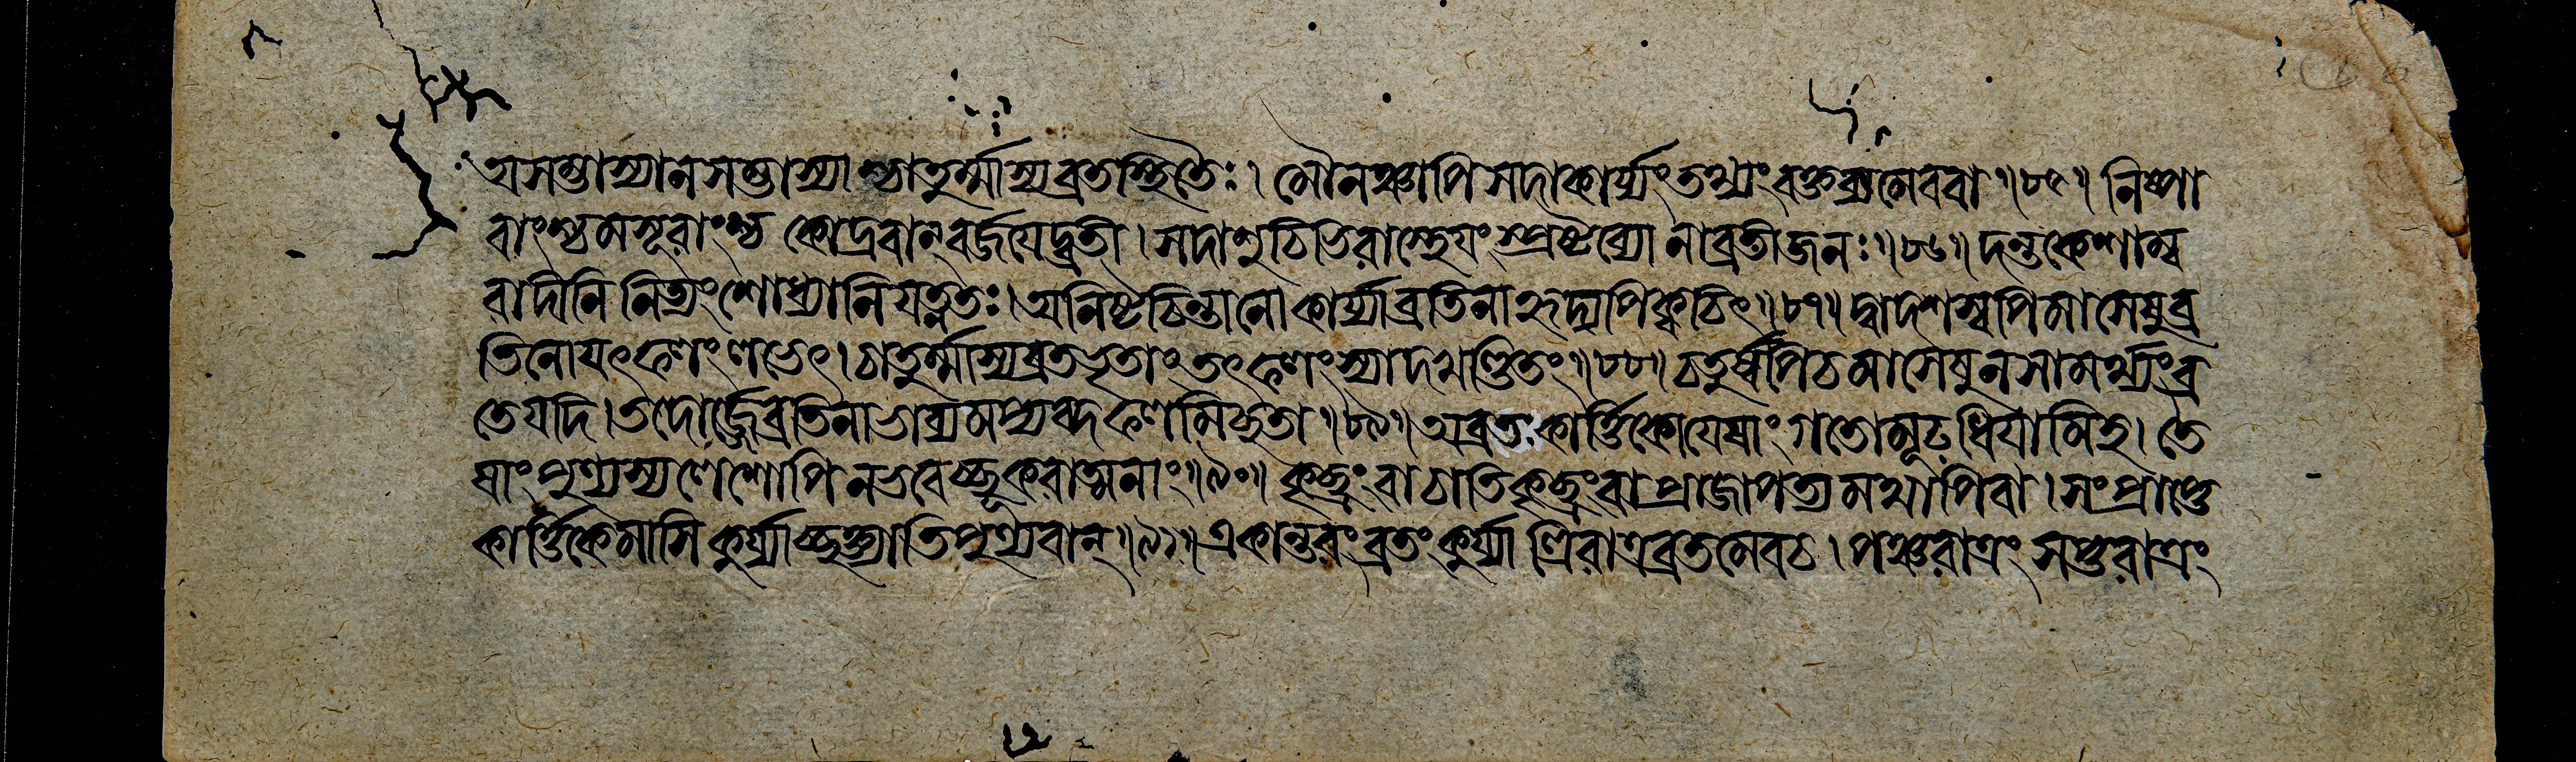 অসম্ভাষ্যানসম্ভাষ্যাশ্চাতুর্ম্মাস্যব্রতস্থিতৈঃ। মৌনঞ্চাপি সদাকার্য্যংতথ্যংবক্তব্যমেববা॥৮৫॥ নিষ্পা
বাংশ্চমসূরাংশ্চ কোদ্রবান্বর্জয়েদ্ব্রতী। সদাশুচিভিরাস্থেয়ংস্প্রষ্টব্যো নাব্রতীজনঃ॥৮৬॥ দন্তকেশাম্ব
রাদীনি নিত্যংশোধ্যানিযত্নতঃ। অনিষ্টচিন্তানোকার্য্যাব্রতিনাহৃদ্যপিক্বচিৎ॥৮৭॥ দ্বাদশস্বপিমাসেষুব্র
তিনোযৎফলংলভেৎ। চাতুর্ম্মাস্যব্রতভৃতাংতৎফলংস্যাদখণ্ডিতং॥৮৮॥ চতুর্ষ্বপিচমাসেষুনসামর্থ্যংব্র
তেযদি। তদোর্জ্জেব্রতিনাভাব্যমপ্যব্দফলমিচ্ছতা॥৮৯॥ অব্রতঃকার্ত্তিকোযেষাংগতোমূঢ়ধিয়ামিহ। তে
ষাংপুণ্যস্যলেশোপি নভবেচ্ছূকরাত্মনাং॥৯০॥ কৃচ্ছ্রংবাচাতিকৃচ্ছ্রংবাপ্রাজাপত্যমথাপিবা। সংপ্রাপ্তে
কার্ত্তিকেমাসি কুর্য্যাচ্ছক্ত্যাতিপুণ্যবান্॥৯১॥ একান্তরংব্রতংকুর্য্যাত্ত্রিরাত্রব্রতমেবচ। পঞ্চরাত্রং সপ্তরাত্রং